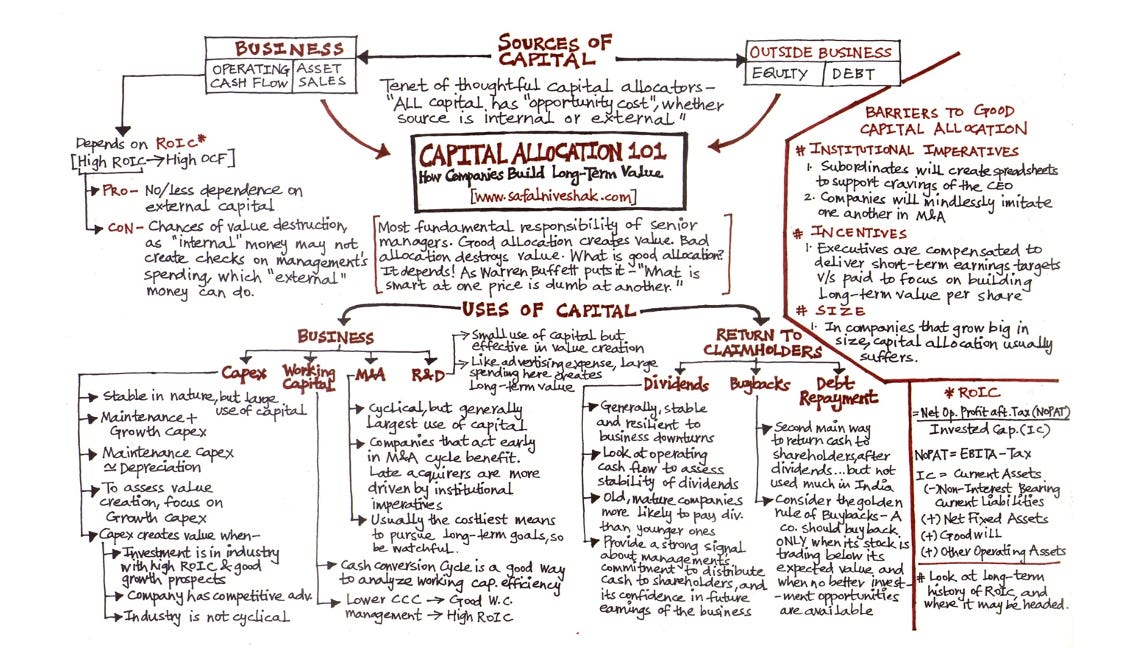 SOURCES OF
CAPITAL
BUSINESS
OPERATING
CASH FLOW
ASSET
SALES
OUTSIDE BUSINESS
EQUITY
DEBT
Tenet of thoughtful capital allocators-
"ALL capital has "opportunity cost", whether
source is internal or external"
Depends on ROIC*
[High ROIC→High OCF]
PRO- No/less dependence on
external capital
CON- Chances of value destruction,
as "internal" money may not
create checks on management's
spending, which "external"
money can do.
CAPITAL ALLOCATION 101
How Companies Build Long-Term Value
[www.safalniveshak.com]
Most fundamental responsibility of senior
managers. Good allocation creates value. Bad
allocation destroys value. What is good allocation?
It depends! As Warren Buffett puts it- "What is
smart at one price is dumb at another."
BARRIERS TO GOOD
CAPITAL ALLOCATION
# INSTITUTIONAL IMPERATIVES
1. Subordinates will create spreadsheets
to support cravings of the CEO
2. Companies will mindlessly imitate
one another in M&A
# INCENTIVES
1. Executives are compensated to
deliver short-term earnings targets
v/s paid to focus on building
Long-term value per share
# SIZE
1. In companies that grow big in
size, capital allocation usually
suffers.
USES OF CAPITAL
BUSINESS
Capex
Working
Capital
M&A
R&D
Small use of capital but
effective in value creation
Like advertising expense, large
spending here creates
Long-term value
Stable in nature, but large
use of capital
Maintenance +
Growth capex
Maintenance capex
≃ Depreciation
To assess value
creation, focus on
Growth capex
Capex creates value when-
Investment is in industry
with high ROIC & good
growth prospects
Company has competitive adv.
Industry is not cyclical
Cyclical, but generally
Largest use of capital
Companies that act early
in M&A cycle benefit.
Late acquirers are more
driven by institutional
imperatives
Usually the costliest means
to pursue long-term goals, so
be watchful.
Cash conversion Cycle is a good way
to analyze working cap. efficiency
Lower CCC → Good W.C.
management → High ROIC
RETURN TO
CLAIMHOLDERS
Dividends
Buybacks
Debt
Repayment
Generally, stable
and resilient to
business downturns
Look at operating
cash flow to assess
stability of dividends
Old, mature companies
more likely to pay div.
than younger ones
Provide a strong signal
about managements
commitment to distribute
cash to shareholders, and
its confidence in future
earnings of the business
Second main way
to return cash to
shareholders, after
dividends...but not
used much in India
Consider the golden
rule of Buybacks- A
co. should buyback
ONLY when its stock is
trading below its
expected value, and
when no better invest-
-ment opportunities
are available
* ROIC
= Net Op. Profit aft. Tax (NOPAT)
Invested Cap. (IC)
NOPAT = EBITA-Tax
IC = Current Assets
(-) Non-Interest Bearing
Current Liabilities
(+) Net Fixed Assets
(+) Goodwill
(+) Other Operating Assets
# Look at Long-term
history of ROIC, and
where it may be headed.